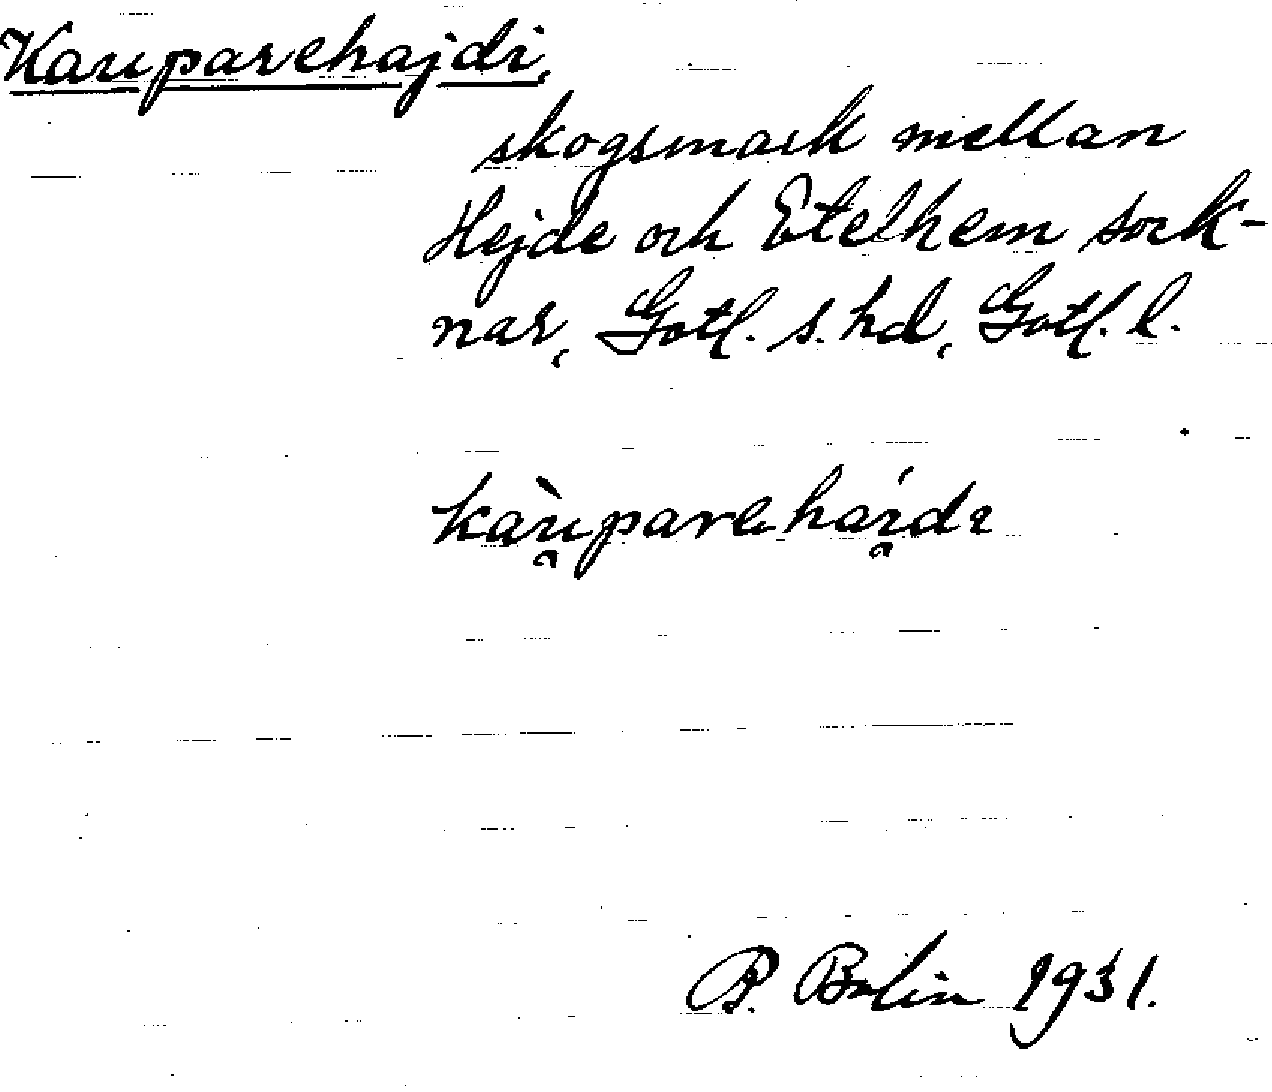 Kauparehajdi,
skogsmark mellan
Hejde och Etelhem sock-
nar, Gotl. s. hd, Gotl. l.
kàu̯parehái̯dı
P. Bolin 1931.